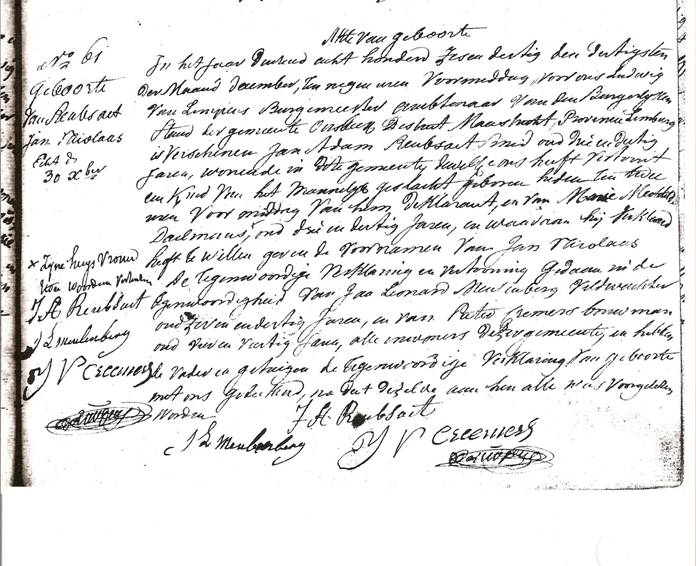 Acte van geboorte
No 61
Geboorte
Van Reubsaet
Jan Nicolaas
30 Xber
In het jaar Duizend acht honderd zes en dertig den dertigsten
der Maand december, ten negen uren Voormiddag, voor ons Ludwig
Van Limpens Burgemeester ambtenaar Van den Burgerlyken
Stand der gemeente Oirsbeek District Maastricht, Provincie Limburg
is verschenen Jan Adam Reubsaet Smid oud drie en dertig
Jaren, wonende in deze gemeente dewelke ons heeft vertoont
een Kind Van het Mannelyk geslacht geboren heden ten twee
uren Voor middag Van hem Deklarant, en van Marie Mechtild
Daelmans, oud drie en dertig Jaren, en waaraan hij verklaard
heeft te willen geven de Voornamen Van Jan Nicolaas
De Tegenwoordige Verklaring en vertooning Gedaan in de
tegenwoordigheid Van Jan Leonard Meulenberg Veldwachter
oud zeven en dertig Jaren, en van Pieter Cremers bouwman
oud vier en veertig Jaren, alle inwoners dezer gemeente, en hebben
de Vader en getuigen de Tegenwoordige Verklaring Van geboorte
met ons geteekend, na dat dezelve aan hen alle was voorgelezen
Worden
x Zyne huys Vrouw
twee woorden
J A Reubsaet
J L Meulenberg
P Creemers
J A Reubsaet
J L Meulenberg
P Creemers